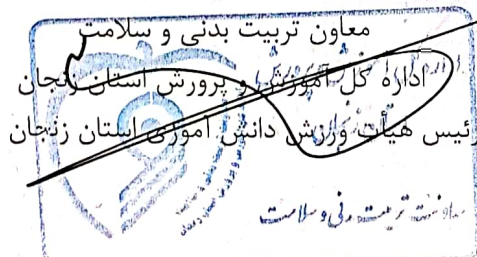 معاون تربیت بدنی و سلامت
اداره کل آموزش و پرورش استان زنجان
رئیس هیأت ورزش دانش آموزی استان زنجان
معاونت تربیت بدنی و سلامت